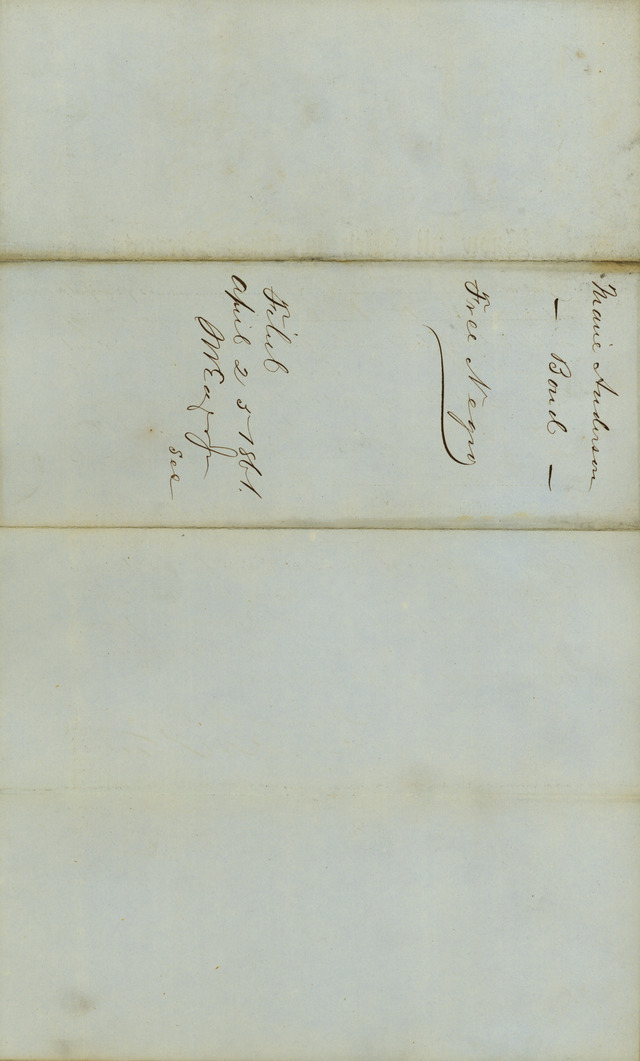 Marie Anderson
— Bond —
Free Negro
Filed
April 25 1861.